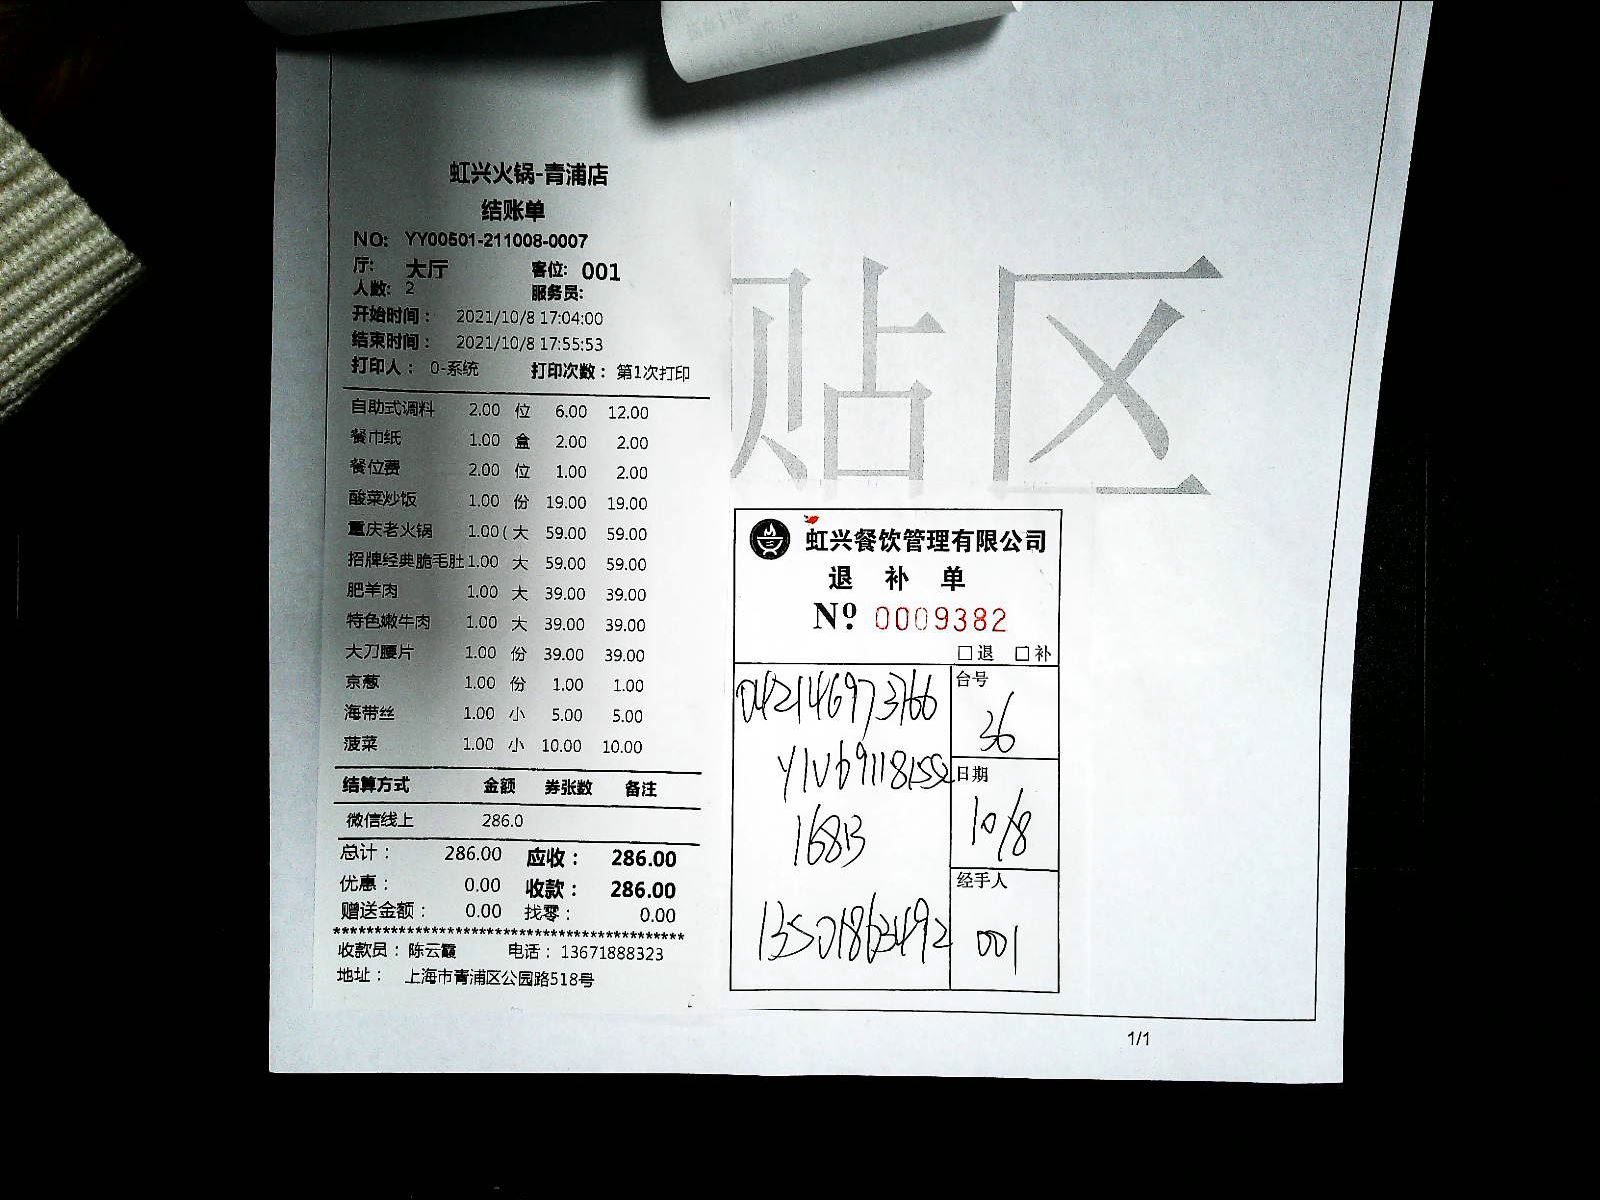 虹兴火锅-青浦店
结账单
NO: YY00501-211008-0007
厅: 大厅 客位: 001
人数: 2 服务员:
开始时间: 2021/10/8 17:04:00
结束时间: 2021/10/8 17:55:53
打印人: 0-系统 打印次数: 第1次打印
自助式调料 2.00 位 6.00 12.00
餐巾纸 1.00 盒 2.00 2.00
餐位费 2.00 位 1.00 2.00
酸菜炒饭 1.00 份 19.00 19.00
重庆老火锅 1.00( 大 59.00 59.00
招牌经典脆毛肚 1.00 大 59.00 59.00
肥羊肉 1.00 大 39.00 39.00
特色嫩牛肉 1.00 大 39.00 39.00
大刀腰片 1.00 份 39.00 39.00
京葱 1.00 份 1.00 1.00
海带丝 1.00 小 5.00 5.00
菠菜 1.00 小 10.00 10.00
结算方式 金额 券张数 备注
微信线上 286.0
总计: 286.00 应收: 286.00
优惠: 0.00 收款: 286.00
赠送金额: 0.00 找零: 0.00
************************************************
收款员: 陈云霞 电话: 13671888323
地址: 上海市青浦区公园路518号
贴区
虹兴餐饮管理有限公司
退 补 单
Nº 0009382
□退 □补
042146973766
168B
13501863492
台号
36
日期
10/8
经手人
001
1/1